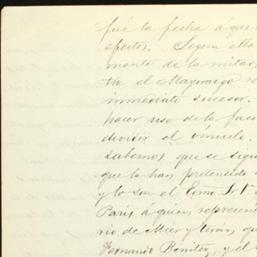 fué la fecha á que
efectos. Segun ella
mento de la mitad
tia el Mayorazgo
inmediato sucesor.
hacer uso de la facu
dividir el vínculo
sabemos que se sigui
que lo han pretendido
y lo son el Excmo Sr.
Paris á quien represent
rio de Meer y
Fernando Benitez, y el